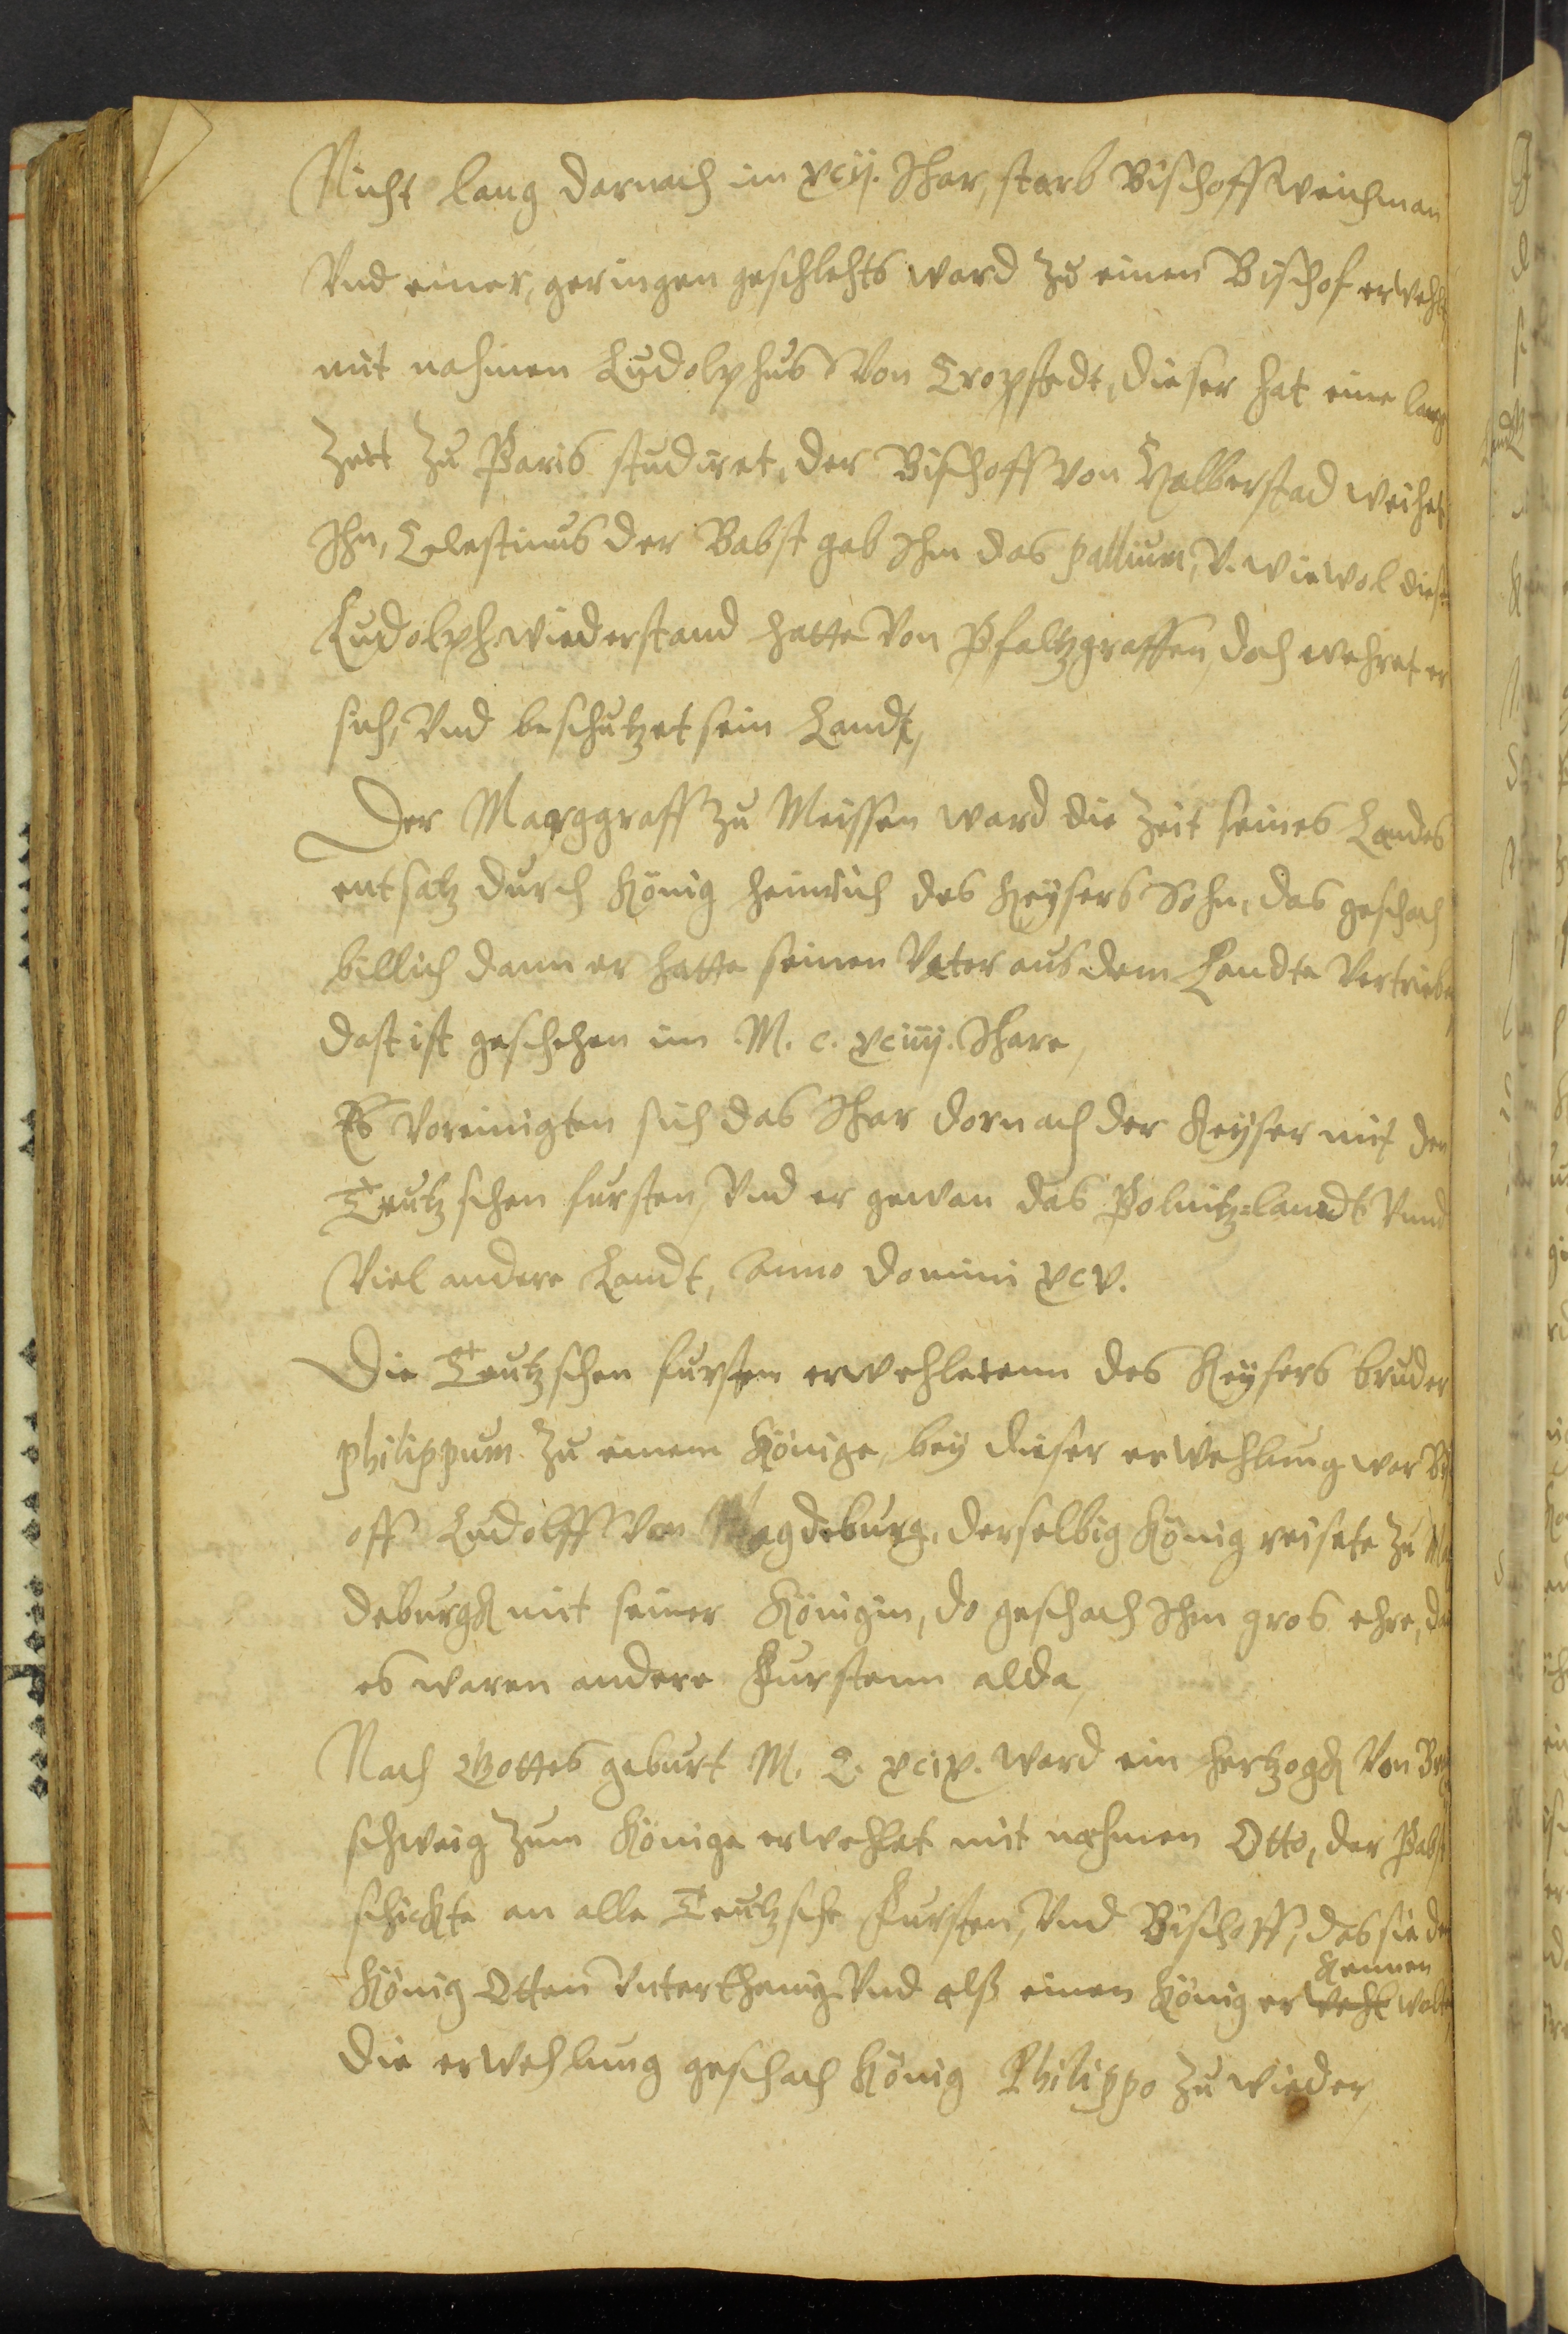 Nicht lang darnach im xcij. Jhar, starb Bischoff Weichman
Vnd einer, geringen geschlehts ward zu einen Bischof erwehlt
mit nahmen Ludolphus Von Cropstedt, dieser hat eine lange
Zeit zu Paris studiret, der Bischoff von Halberstad weihet
Ihn, Celestinus der Babst gab Ihm das pallium, V. wiewol dieser
Ludolph wiederstand hatte Von Pfaltzgraffen, doch wehret er
sich, Vnd beschutzet sein Landt,
Der Marggraff zu Meissen ward die Zeit seines Landes
entsatz durch König Heinrich des Keysers Sohn, das geschach
billich dann er hatte seinen Vater aus dem Landte Vertrieben
dast ist geschehen im M. c. xciiij. Jhare,
Es Voreinigten sich das Jhar dornach der Keyser mit den
Teutzschen fursten, Vnd er gewan das Polnitz=landt Vnnd
Viel andere Landt, Anno domini xcv.
Die Teutzschen fursten erwehletenn des Keysers bruder
philippum zu einem Könige, bey dieser erwehlung war Bisch
off Ludolff Von Magdeburg, derselbig König reisete zu Mag
deburgk mit seiner Königin, do geschach Ihm gros ehre,
es waren andere Furstenn alda,
Nach Gottes geburt M. C. xcix. ward ein Hertzogk Von Braun
schweig zum Könige erwehlet mit nahmen Otto, der Pabst
schickte an alle Teutzsche Fursten, Vnd Bischoff, das sie dem
kennen
König Otten Vnterthenig Vnd alß einen König erwehlt wolten
Die erwehlung geschach König Philippo zu wieder,